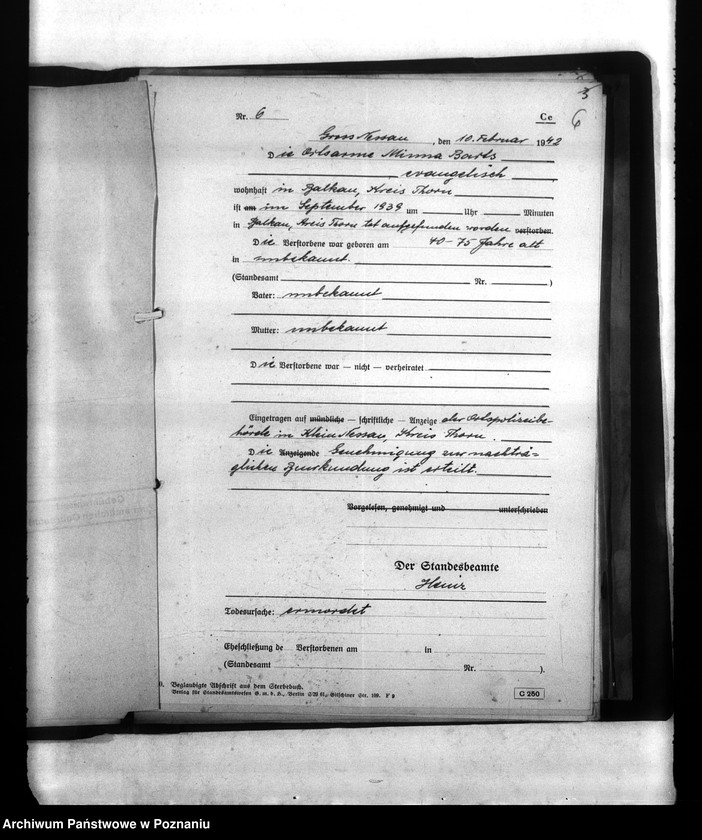 5
6
Nr. 6
Ce
Gross Nessau, den 10. Februar 1942
Die Ortsarme Minna Barts
evangelisch
wohnhaft in Balkau, Kreis Thorn
ist am im September 1939 um Uhr Minuten
in Balkau, Kreis Thorn tot aufgefunden worden verstorben.
Die Verstorbene war geboren am 70-75 Jahre alt
in unbekannt.
(Standesamt Nr. )
Vater: unbekannt
Mutter: unbekannt
Die Verstorbene war — nicht — verheiratet
Eingetragen auf mündliche — schriftliche — Anzeige der Ortspolizeibe-
hörde in Klein Nessau, Kreis Thorn.
Die Anzeigende Genehmigung zur nachträ-
glichen Beurkundung ist erteilt.
Vorgelesen, genehmigt und unterschrieben
Der Standesbeamte
Todesursache: ermordet
Eheschließung de Verstorbenen am in
(Standesamt Nr. ).
Beglaubigte Abschrift aus dem Sterbebuch.
Verlag für Standesamtswesen G. m. b. H., Berlin SW 61, Gitschiner Str. 109.
C 250
Archiwum Państwowe w Poznaniu